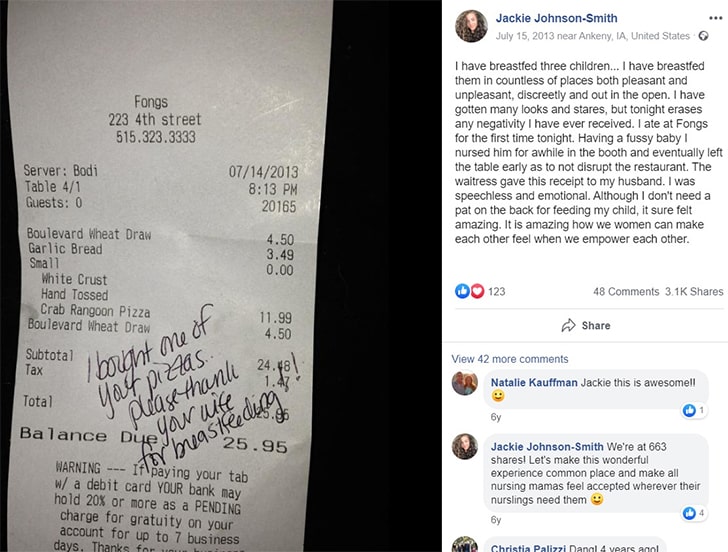 Fongs
223 4th street
515.323.3333
Server: Bodi 07/14/2013
Table 4/1 8:13 PM
Guests: 0 20165
Boulevard Wheat Draw 4.50
Garlic Bread 3.49
Small 0.00
White Crust
Hand Tossed
Crab Rangoon Pizza 11.99
Boulevard Wheat Draw 4.50
Subtotal 24.48
Tax 1.47
Total 25.95
Balance Due 25.95
I bought one of
your pizzas..
please thank
your wife
for breastfeeding!
WARNING --- If paying your tab
w/ a debit card YOUR bank may
hold 20% or more as a PENDING
charge for gratuity on your
account for up to 7 business
days. Thanks for
Jackie Johnson-Smith
July 15, 2013 near Ankeny, IA, United States ·
I have breastfed three children... I have breastfed
them in countless of places both pleasant and
unpleasant, discreetly and out in the open. I have
gotten many looks and stares, but tonight erases
any negativity I have ever received. I ate at Fongs
for the first time tonight. Having a fussy baby I
nursed him for awhile in the booth and eventually left
the table early as to not disrupt the restaurant. The
waitress gave this receipt to my husband. I was
speechless and emotional. Although I don't need a
pat on the back for feeding my child, it sure felt
amazing. It is amazing how we women can make
each other feel when we empower each other.
123 48 Comments 3.1K Shares
Share
View 42 more comments
Natalie Kauffman Jackie this is awesome!!
1
6y
Jackie Johnson-Smith We're at 663
shares! Let's make this wonderful
experience common place and make all
nursing mamas feel accepted wherever their
nurslings need them
4
6y
Christia Palizzi Dang! 4 years ago!